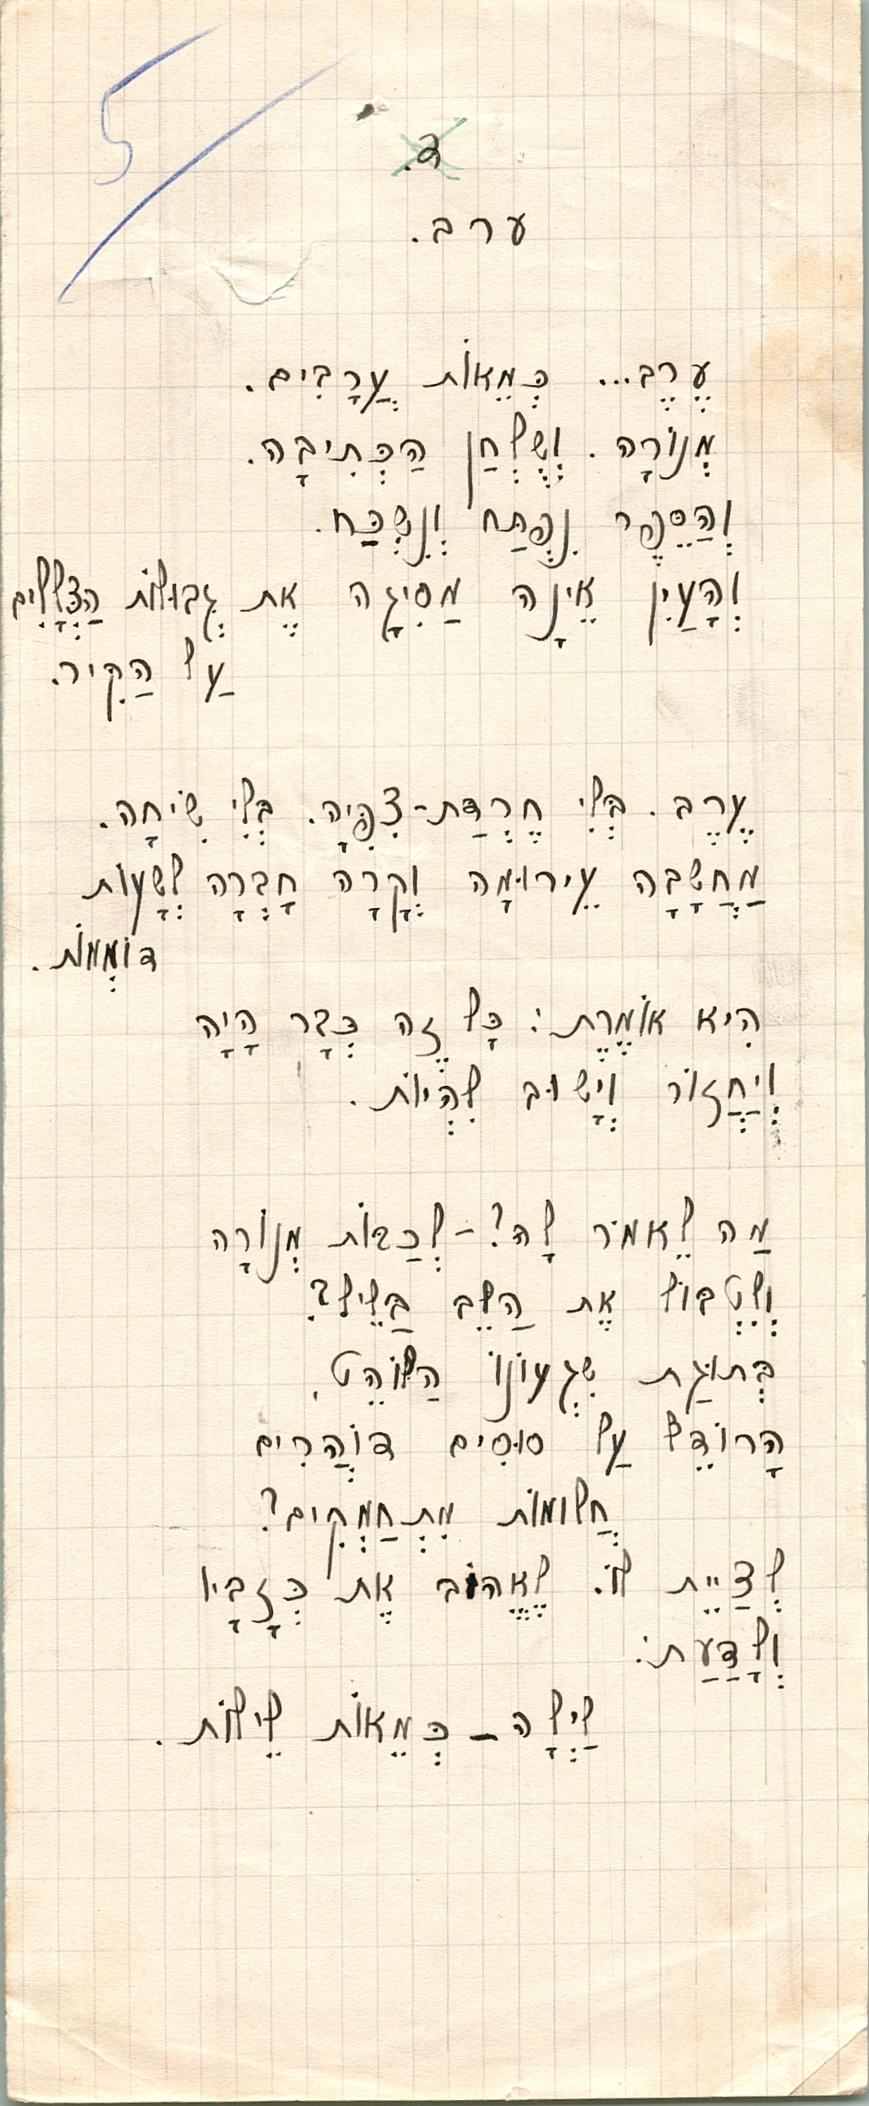 5
ד.
ערב.
עֶרֶב... כְּמֵאוֹת עֲרָבִים.
מְנוֹרָה. וְשֻלְחַן הַכְּתִיבָה.
וְהַסֵּפֶר נִפְתַּח וְנִשְׁכַּח.
וְהָעַיִן אֵינָה מַסִּיגָה אֶת גְּבוּלוֹת הַצְּלָלִים
עַל הַקִּיר.
עֶרֶב. בְּלִי חֶרְדַּת-צִפִּיָה. בְּלִי שִׂיחָה.
מַחֲשָבָה עֵירוּמָה וְקָרָה חָבְרָה לְשָעוֹת
דוֹמְמוֹת.
הִיא אוֹמֶרֶת: כָּל זֶה כְּבָר הָיָה
וְיַחֲזוֹר וְיָשוּב לִהְיוֹת.
מַה לֵאמֹר לָה? - לְכַבּוֹת מְנוֹרָה
וְלִטְבּוֹל אֶת הַלֵּב בַּלֵּיל?
בְּתוּגַת שִגְעוֹנוֹ הַלּוֹהֵט,
הָרוֹדֵף עַל סוּסִים דוֹהֲרִים
חֲלוֹמוֹת מִתְחַמְּקִים?
לְצַיֵּת לוֹ. לֶאֱהוֹב אֶת כְּזָבָיו
וְלָדַעַת:
לַיְלָה – כְּמֵאוֹת לֵילוֹת.